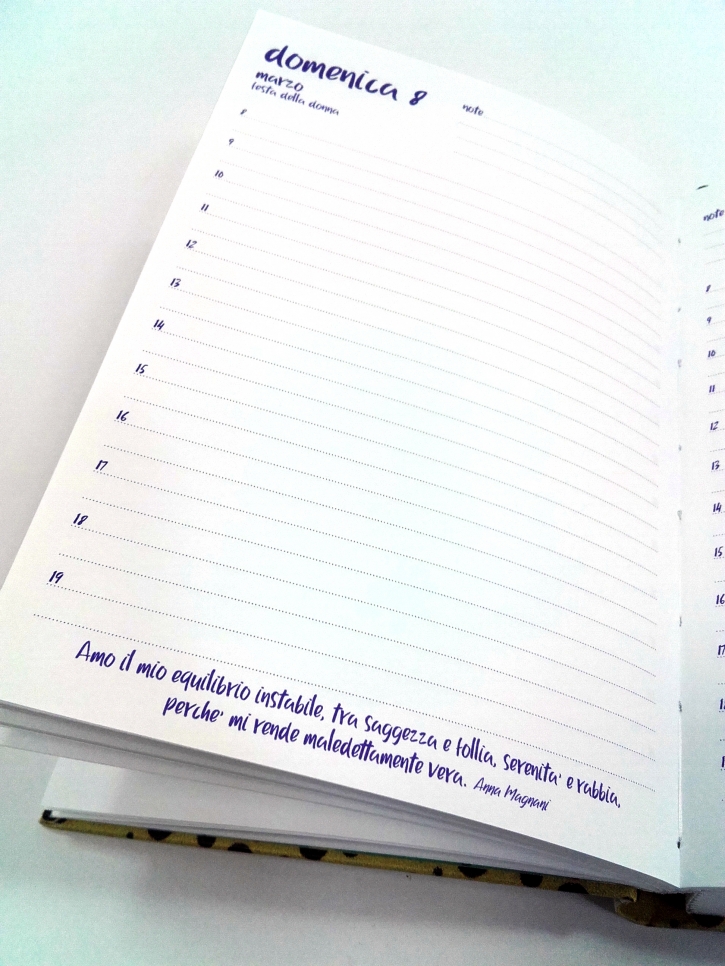 domenica 8
marzo
festa della donna
note
8
9
10
11
12
13
14
15
16
17
18
19
Amo il mio equilibrio instabile, tra saggezza e follia, serenita' e rabbia,
perche' mi rende maledettamente vera. Anna Magnani
note
8
9
10
11
12
13
14
15
16
17